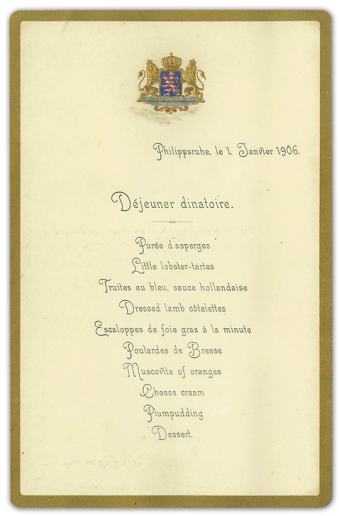 Philippsruhe, le 1. Janvier 1906.
Déjeuner dinatoire.
Purée d'asperges
Little lobster-tartes
Truites au bleu, sauce hollandaise
Dressed lamb côtelettes
Escaloppes de foie gras à la minute
Poulardes de Bresse
Muscovite of oranges
Cheese cream
Plumpudding
Dessert